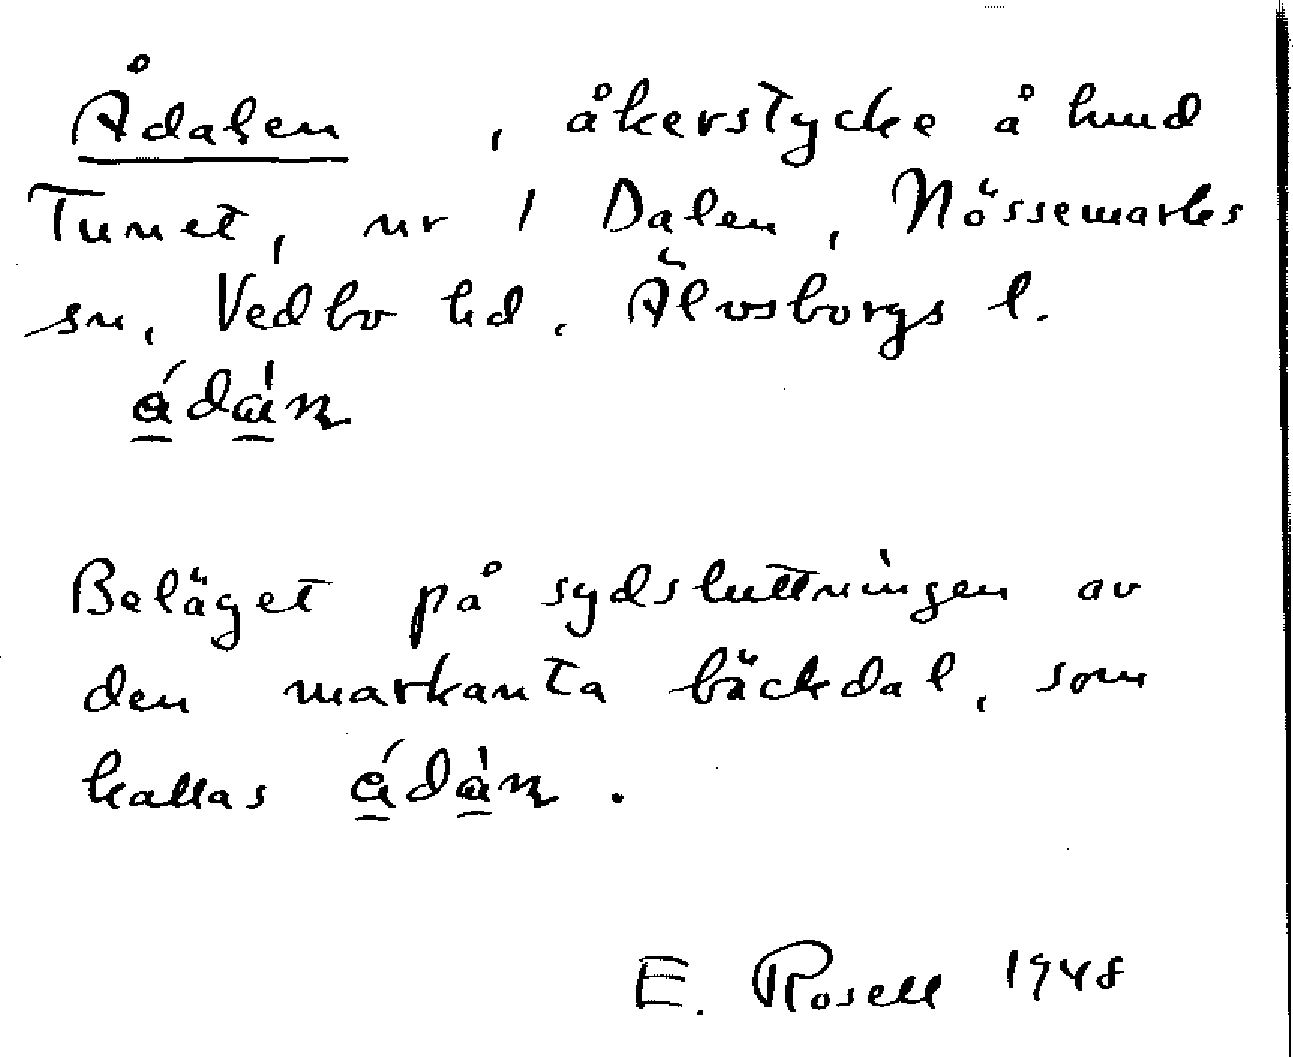 Ådalen, åkerstycke å hmd
Tunet, nr 1 Dalen, Nössemarks
sn, Vedbo hd. Älvsborgs l.
Beläget på sydsluttningen av
den markanta bäckdal, som
kallas
E. Rosell 1948